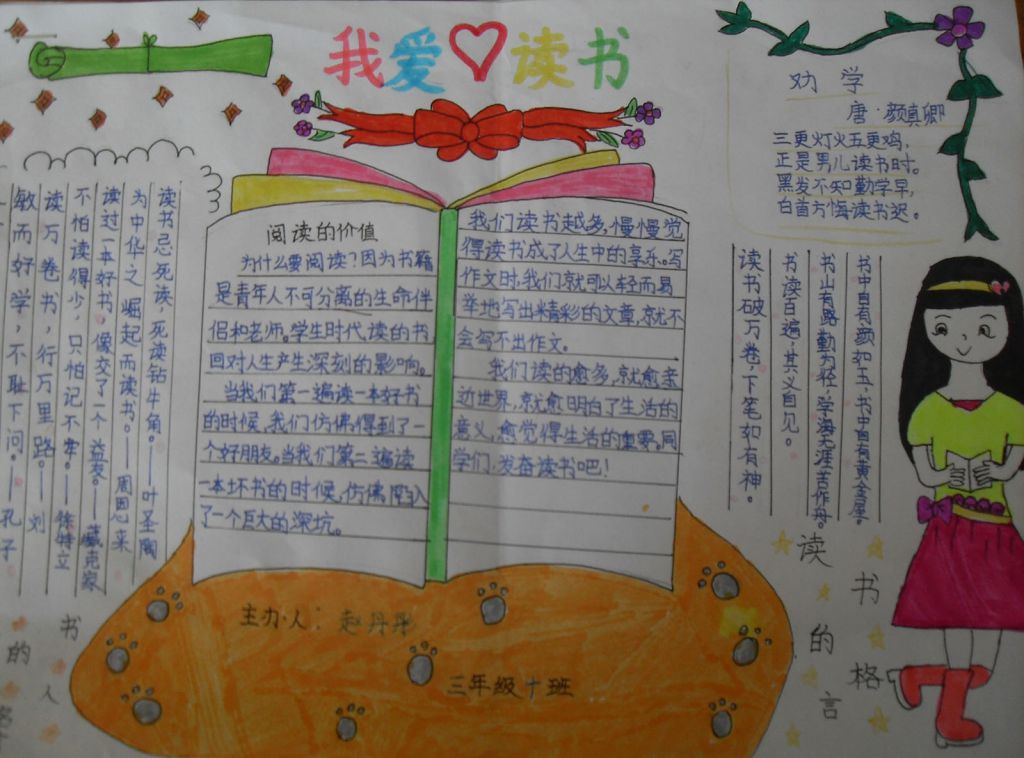 我爱读书
劝学
唐·颜真卿
三更灯火五更鸡，
正是男儿读书时。
黑发不知勤学早，
白首方悔读书迟。
阅读的价值
为什么要阅读？因为书籍
是青年人不可分离的生命伴
侣和老师。学生时代读的书
回对人生产生深刻的影响。
当我们第一遍读一本好书
的时候，我们仿佛得到了一
个好朋友。当我们第二遍读
一本坏书的时候，仿佛陷入
了一个巨大的深坑。
我们读书越多，慢慢觉
得读书成了人生中的享乐。写
作文时，我们就可以轻而易
举地写出精彩的文章，就不
会写不出作文。
我们读的愈多，就愈亲
近世界，就愈明白了生活的
意义，愈觉得生活的重要。同
学们，发奋读书吧！
读书忌死读，死读钻牛角。——叶圣陶
为中华之崛起而读书。——周恩来
读过一本好书，像交了一个益友。——臧克家
不怕读得少，只怕记不牢。——徐特立
读万卷书，行万里路。——刘
敏而好学，不耻下问。——孔子
书中自有颜如玉，书中自有黄金屋。
书山有路勤为径，学海无涯苦作舟。
书读百遍，其义自见。
读书破万卷，下笔如有神。
读书的格言
书
的人
主办人：赵丹彤
三年级十班